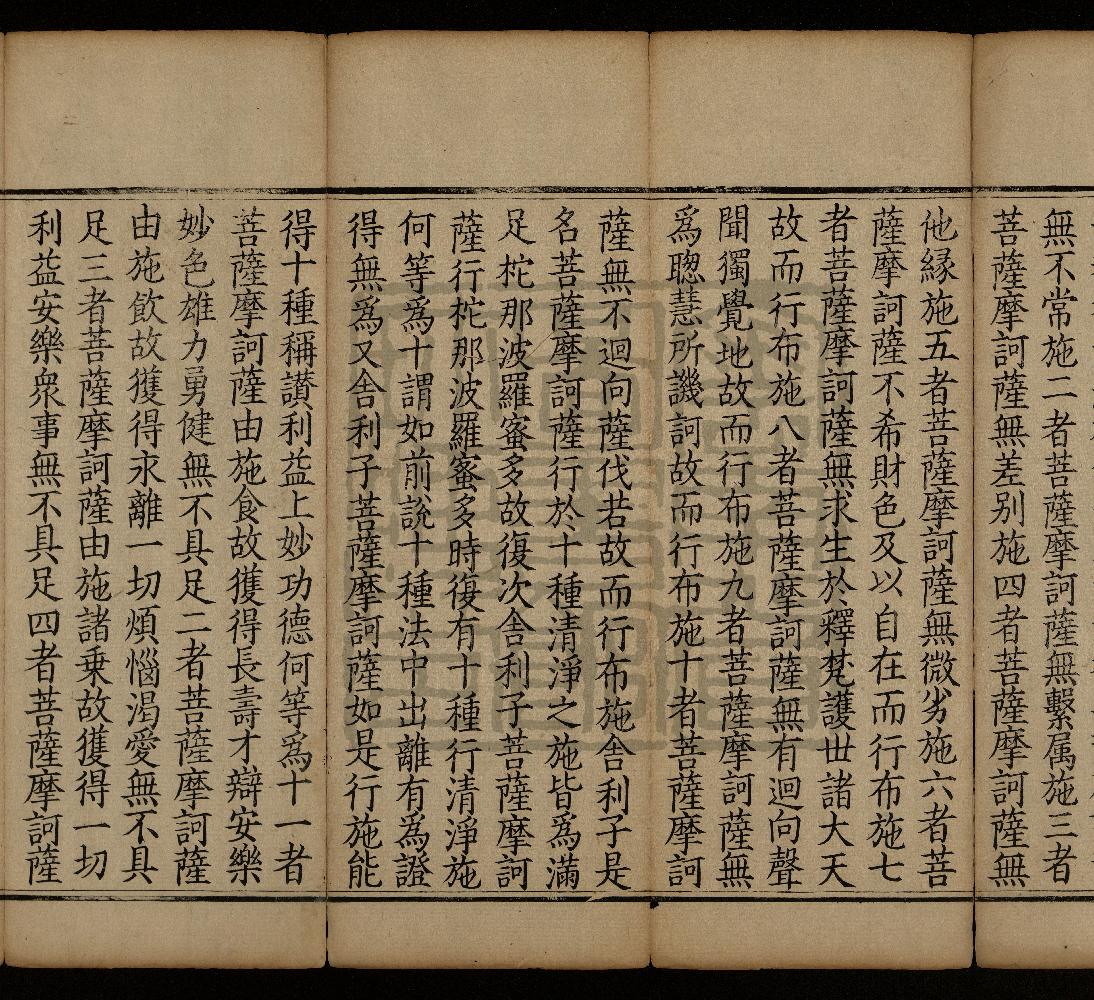 無不常施二者菩薩摩訶薩無繫属施三者
菩薩摩訶薩無差别施四者菩薩摩訶薩無
他緣施五者菩薩摩訶薩無微劣施六者菩
薩摩訶薩不希財色及以自在而行布施七
者菩薩摩訶薩無求生於釋梵護世諸大天
故而行布施八者菩薩摩訶薩無有迴向聲
聞獨覺地故而行布施九者菩薩摩訶薩無
爲聰慧所譏訶故而行布施十者菩薩摩訶
薩無不迴向薩伐若故而行布施舎利子是
名菩薩摩訶薩行於十種清淨之施皆爲滿
足柁那波羅蜜多故復次舎利子菩薩摩訶
薩行柁那波羅蜜多時復有十種行清淨施
何等爲十謂如前說十種法中出離有爲證
得無爲又舎利子菩薩摩訶薩如是行施能
得十種稱讃利益上妙功德何等爲十一者
菩薩摩訶薩由施食故獲得長壽才辯安樂
妙色雄力勇健無不具足二者菩薩摩訶薩
由施飲故獲得永離一切煩惱渴愛無不具
足三者菩薩摩訶薩由施諸乗故獲得一切
利益安樂衆事無不具足四者菩薩摩訶薩